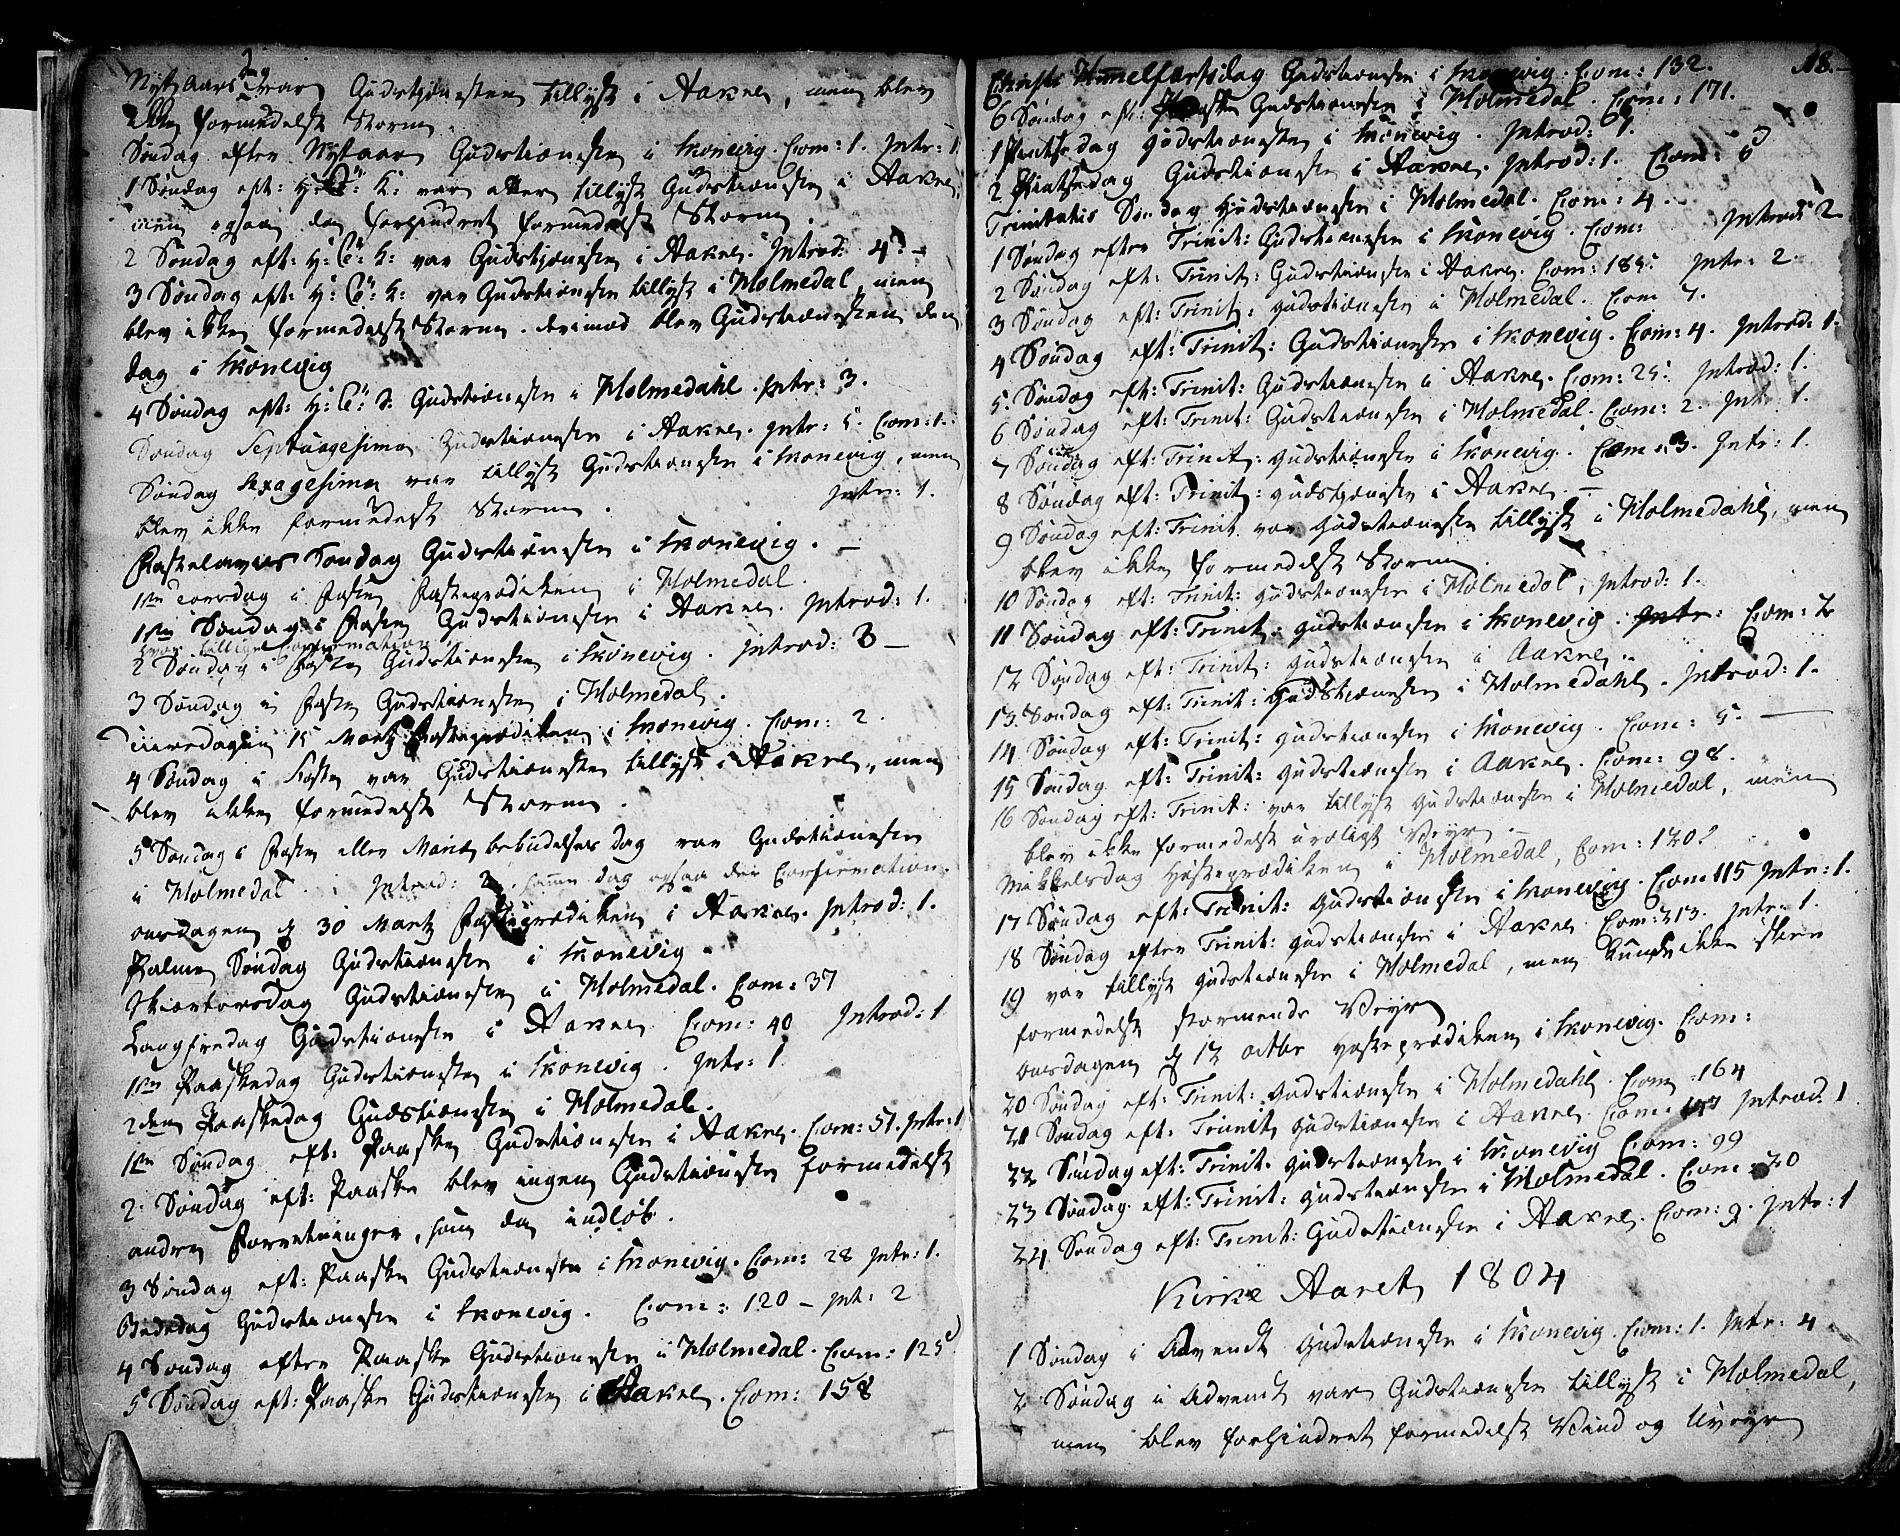 Nyt Aars dag var Gudstjenesten tillyst i Aakre, men blev
ikke formedelst Storm.
Søndag efter Nyt aar Gudstienesten i Skonevig. Com: 1. Intr: 1.
1 Søndag eft: H: 3: K: var atter tillyst Gudstienesten i Aakre,
men ogsaa da forhindret formedelst Storm.
2 Søndag eft: H: 3: K: var Gudstjenesten i Aakre. Introd: 4. –
3 Søndag eft: H: 3: K: var Gudstienesten tillyst i Holmedal, men
blev ikke formedelst Storm. derimod blev Gudstienesten den
dag i Skonevig
4 Søndag eft: H: 3: K: Gudstienesten i Holmedahl. Intr: 3.
Søndag Septuagesima Gudstienesten i Aakre. Intr: 5. Com: 1.
Søndag Sexagesima var tillyst Gudstienesten i Skonevig, men
blev ikke formedelst Storm. Intr: 1.
Fastelavns Søndag Gudstienesten i Skonevig. –
1ste Torsdag i Fasten Fasteprædiken i Holmedal.
1ste Søndag i Fasten Gudstienesten i Aakre. Introd: 1.
hvor tillige Confirmation
2 Søndag i Fasten Gudstienesten i Skonevig. Introd: 3 –
3 Søndag i Fasten Gudstienesten i Holmedal.
Tiirsdagen 15 Martz Fasteprædiken i Skonevig. Com: 2.
4 Søndag i Faste var Gudstienesten tillyst i Aakre, men
blev ikke formedelst Storm.
5 Søndag i Fasten eller Mariæ bebudelses dag var Gudstienesten
i Holmedal. Introd: 2. samme dag ogsaa der Confirmation
onsdagen d 30 Martz Fasteprædiken i Aakre. Introd: 1.
Palme Søndag Gudstienesten i Skonevig.
Skiertorsdag Gudstienesten i Holmedal. Com: 37
Langfredag Gudstienesten i Aakre. Com: 40 Introd: 1
1ste Paaskedag Gudstienesten i Skonevig. Intr: 1.
2den Paaskedag Gudstienesten i Holmedal.
1ste Søndag eft: Paasken Gudstienesten i Aakre. Com: 51. Intr: 1
2. Søndag eft: Paaske blev ingen Gudstienesten formedelst
andre Forretninger, som da indløb.
3 Søndag eft: Paaske Gudstienesten i Skonevig. Com: 28 Intr: 1.
Bededag Gudstienesten i Skonevig. Com: 120 – Int: 2
4 Søndag efter Paaske Gudstienesten i Holmedal. Com: 125
5 Søndag eft: Paaske Gudstienesten i Aakre. Com: 158
18.
Christi Himmelfartsdag Gudstienesten i Skonevig. Com: 132.
6 Søndag eft: Paaske Gudstienesten i Holmedal. Com: 171.
1 Pintsedag Gudstienesten i Skonevig. Introd:
2 Pintsedag Gudstienesten i Aakre. Introd: 1. Com: 6
Trinitatis Søndag Gudstienesten i Holmedal. Com: 4.
1 Søndag efter Trinit: Gudstienesten i Skonevig. Com: Introd: 2
2 Søndag eft: Trinit: Gudstienesten i Aakre. Com: 185. Intr: 2
3 Søndag eft: Trinit: Gudstienesten i Holmedal. Com 7.
4 Søndag eft: Trinit: Gudstienesten i Skonevig. Com: 4. Introd: 1.
5. Søndag eft: Trinit: Gudstienesten i Aakre. Com: 25. Introd: 1.
6 Søndag eft: Trinit: Gudstienesten i Holmedal. Com: 2. Int: 1.
7 Søndag eft: Trinit: Gudstienesten i Skonevig. Com: 3. Intr: 1.
8 Søndag eft: Trinit: Gudstjenesten i Aakre. –
9 Søndag eft: Trinit. var Gudstienesten tillyst i Holmedahl, men
blev ikke formedelst Storm.
10 Søndag eft: Trinit: Gudstienesten i Holmedal, Introd: 1.
11 Søndag eft: Trinit: Gudstienesten i Skonevig. Intr: Com: 2
12 Søndag eft: Trinit: Gudstienesten i Aakre.
13. Søndag eft: Trinit: Gudstienesten i Holmedahl. Introd: 1.
14 Søndag eft: Trinit: Gudstienesten i Skonevig. Com: 5. –
15 Søndag eft: Trinit: Gudstienesten i Aakre. Com: 98.
16 Søndag eft: Trinit: var tillyst Gudstienesten i Holmedal, men
blev ikke formedelst uroligt Veyr.
Mikkelsdag Høsteprædiken i Holmedal, Com: 120.
17 Søndag eft: Trinit: Gudstienesten i Skonevig. Com 115 Intr: 1.
18 Søndag efter Trinit: Gudstienesten i Aakre. Com: 213. Intr: 1.
19 var tillyst Gudstienesten i Holmedal, men kunde ikke skee
formedelst stormende Veyr
onsdagen d 12 octbr Høsteprædiken i Skonevig. Com:
20 Søndag eft: Trinit: Gudstienesten i Holmedahl. Com: 164
21 Søndag eft: Trinit: Gudstienesten i Aakre. Com: Introd: 1
22 Søndag eft: Trinit. Gudstienesten i Skonevig Com: 99
23 Søndag eft: Trinit: Gudstienesten i Holmedal. Com: 20
24 Søndag eft: Trinit: Gudstienesten i Aakre. Com: 9. Intr: 1
Kirke Aaret 1804
1 Søndag i Advent Gudstienesten i Skonevig. Com: 1. Intr: 4
2 Søndag i Advendt var Gudstienesten tillyst i Holmedal,
men blev forhindret formedelst Vind og Uveyr